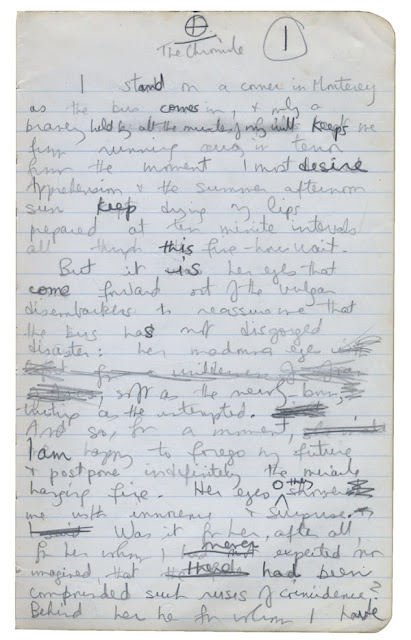 The Chronicle
1
I stand on a corner in Monterey
as the bus comes in, & only a
bravery held by all the muscles of my will keeps me
from running away in terror
from the moment I most desire
Apprehension & the summer afternoon
sun keep drying my lips
prepared at ten minute intervals
all through this five-hour wait.
But it is her eyes that
come forward out of the vulgar
disembarkers to reassure me that
the bus has not disgorged
disaster: her madonna eyes
for wilderness of
soft as the newly born,
trusting as the untempted.
And so, for a moment,
I am happy to forego my future
& postpone indefinitely the miracle
hanging fire. Her eyes shower
me with innocence & surprise.
Was it for her, after all,
for her whom I had never expected nor
imagined, that there had been
compounded such ruses of coincidence?
Behind her he for whom I have